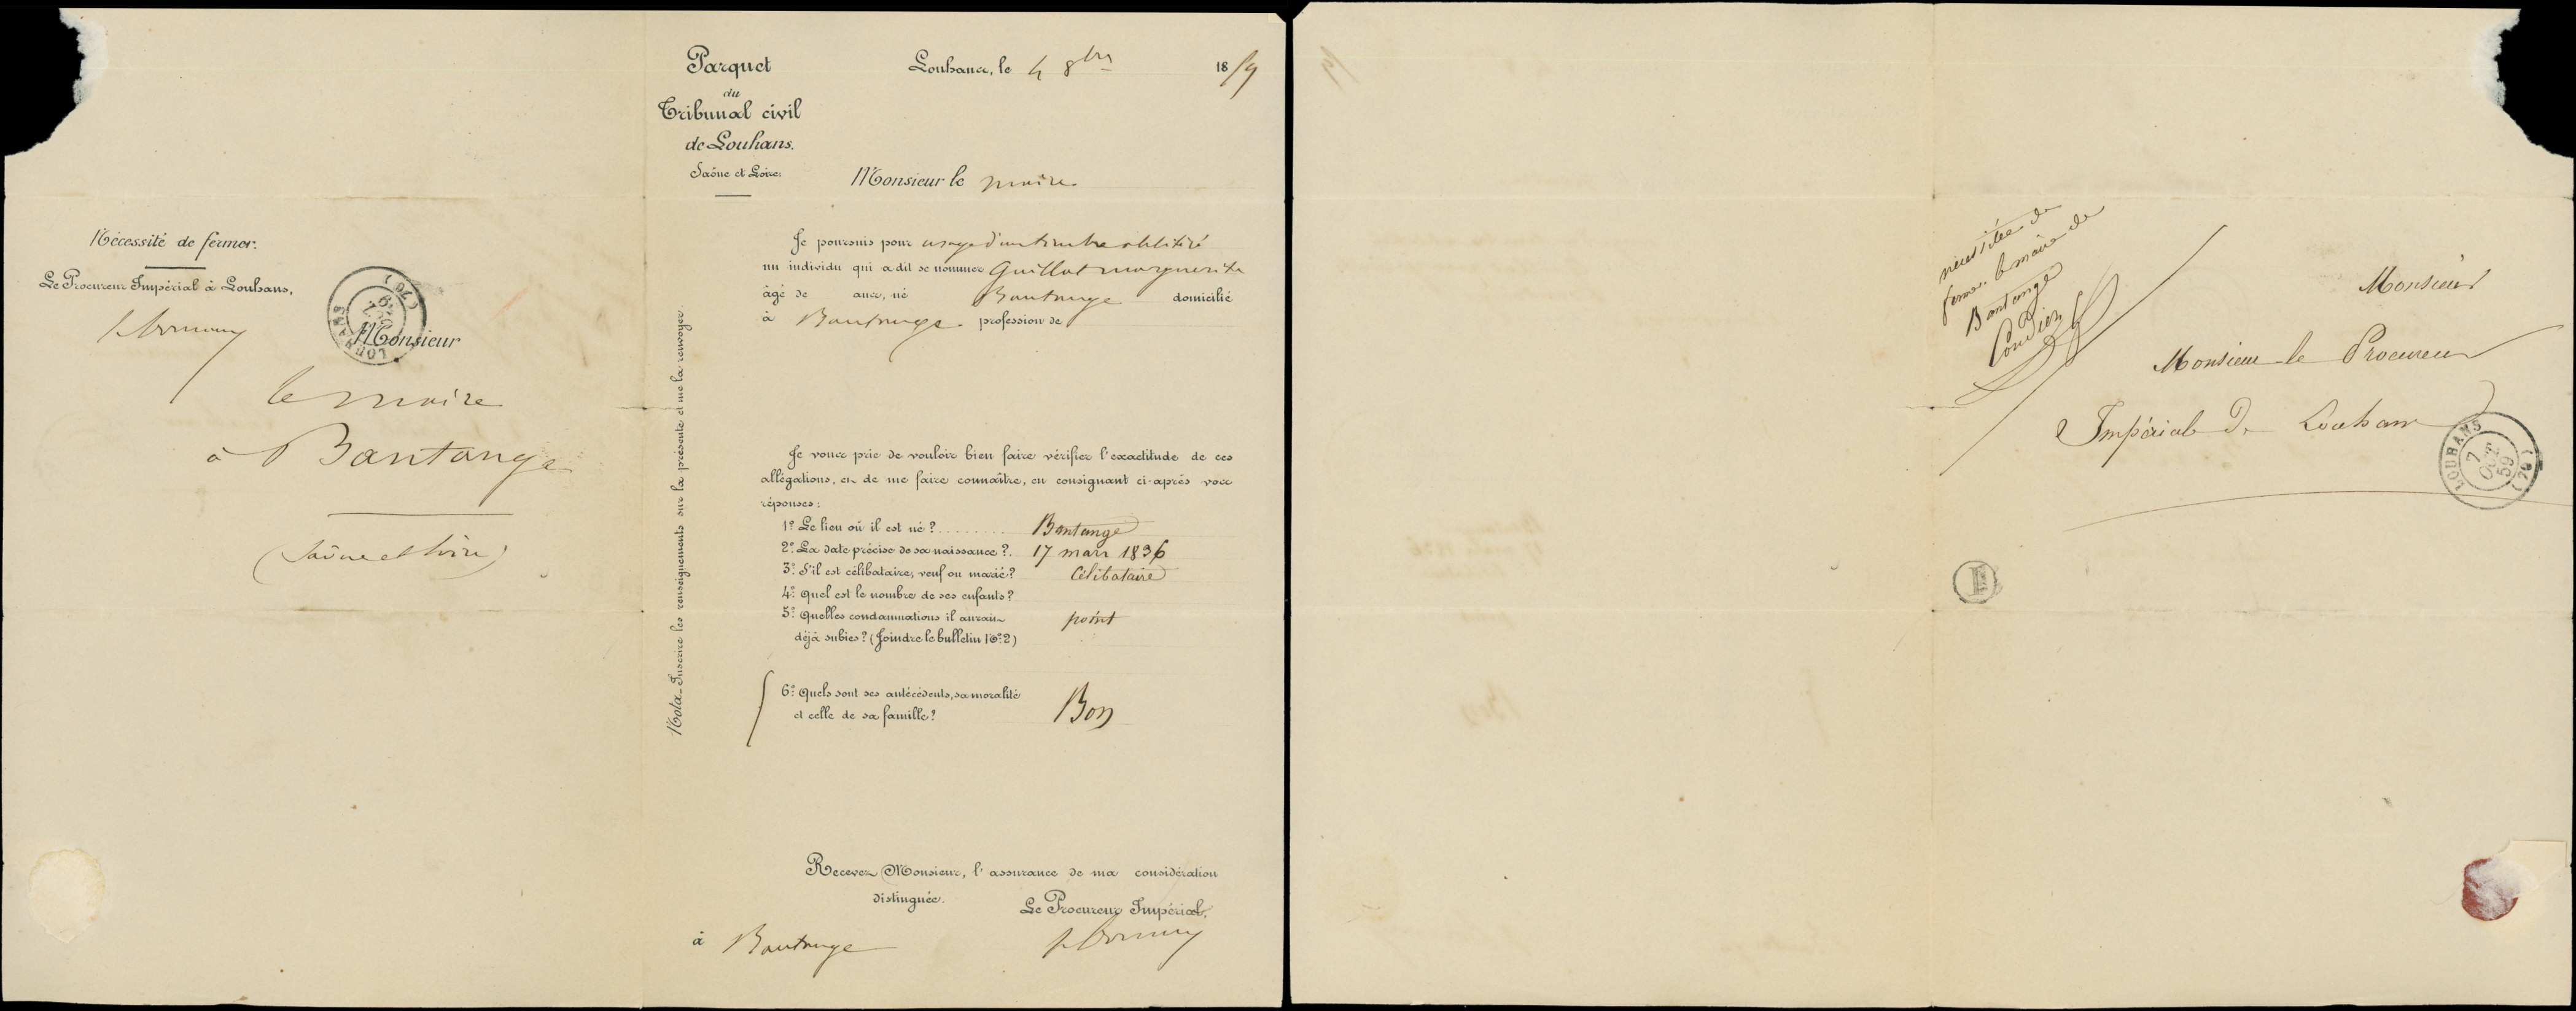 Nécessité de fermer.
Le Procureur Impérial à Louhans,
LOUHANS
OCT.
59
(70)
Monsieur
le maire
à Bantange
(Saône et Loire)
Parquet
du
Tribunal civil
de Louhans.
Saône et Loire.
Louhans, le 4 8bre 1859
Monsieur le maire
Je poursuis pour usage d'un timbre oblitéré
un individu qui a dit se nommer Guillot marguerite
âgé de ans, né Bantange domicilié
à Bantange profession de
Je vous prie de vouloir bien faire vérifier l'exactitude de ces
allégations, et de me faire connaître, en consignant ci-après vos
réponses:
1º Le lieu où il est né? Bantange
2º La date précise de sa naissance? 17 mars 1836
3º S'il est célibataire, veuf ou marié? Célibataire
4º Quel est le nombre de ses enfants?
5º Quelles condamnations il aurait point
déjà subies? (Joindre le bulletin Nº 2)
6º Quels sont ses antécédents, sa moralité
et celle de sa famille? Bon
Recevez Monsieur, l'assurance de ma considération
distinguée.
Le Procureur Impérial,
à Bantange
Nota_Inscrire les renseignements sur la présente et me la renvoyer
nécessitée de
fermer. le maire de
Bantange
Monsieur
Monsieur le Procureur
Impérial De Louhans
LOUHANS
7
OCT
59
(70)
B